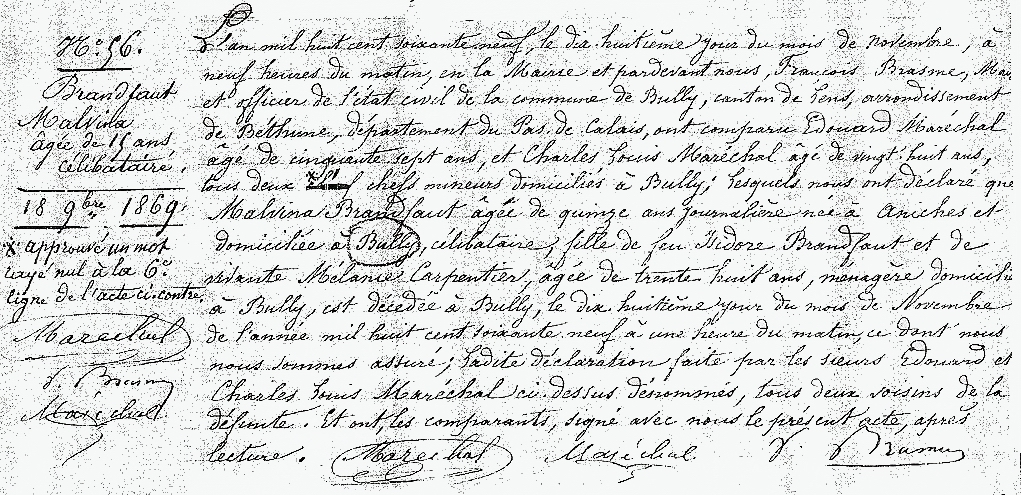 N° 56.
Brandfaut
Malvina
âgée de 15 ans
célibataire.
18 9bre 1869.
X approuvé un mot
rayé nul à la 6e
ligne de l'acte ci-contre.
Marechal
f. Brasme
Maréchal
L'an mil huit cent soixante neuf, le dix huitième jour du mois de novembre, à
neuf heures du matin, en la Mairie et pardevant nous, François Brasme, Mai
et officier de l'état civil de la commune de Bully, canton de Lens, arrondissement
de Béthune, département du Pas de Calais, ont comparu Edouard Maréchal
âgé de cinquante sept ans, et Charles Louis Maréchal âgé de vingt huit ans,
tous deux chefs mineurs domiciliés à Bully; lesquels nous ont déclaré que
Malvina Brandfaut âgée de quinze ans journalière née à Aniches et
domiciliée à Bully, célibataire, fille de feu Isidore Brandfaut et de
vivante Mélanie Carpentier, âgée de trente huit ans, ménagère domicilié
à Bully, est décédée à Bully, le dix huitième jour du mois de Novembre
de l'année mil huit cent soixante neuf à une heure du matin, ce dont nous
nous sommes assuré; Ladite déclaration faite par les sieurs Edouard et
Charles Louis Maréchal ci-dessus dénommés, tous deux voisins de la
défunte. Et ont, les comparants, signé avec nous le présent acte, après
lecture. Marechal Maréchal f Brasme